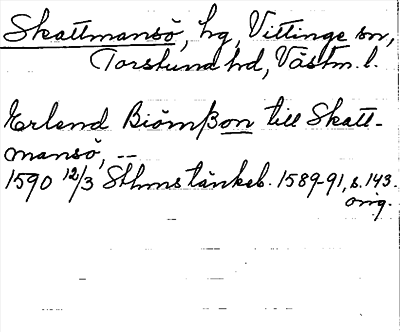 Skattmansö, hg, Vittinge sn,
Torstuna hd, Västm. l.
Erland Biömßon till Skatt-
mansö, --
1590 12/3 Sthms tänkeb. 1589-91, s. 143.
orig.